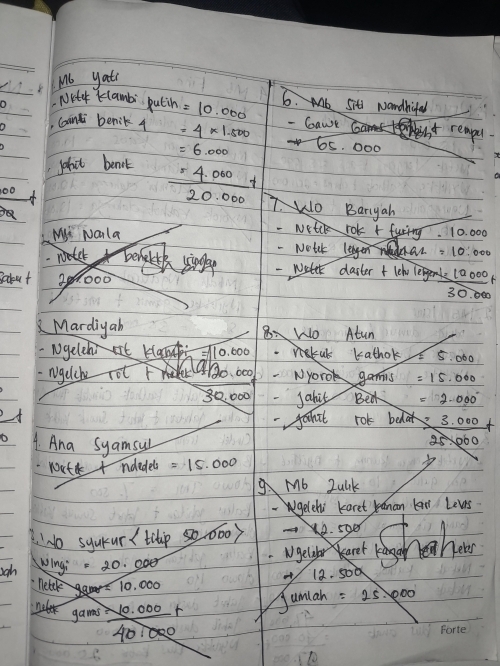 Mb Yati
- Netek klambi putih = 10.000
- Ganti benik 4 = 4 x 1.500
= 6.000
- Jahit benik = 4.000 +
20.000
Naila
- Netek +
20.000
3. Mardiyah
- Ngelebi rok klambi = 10.000
- ngelebi rok + = 20.000 +
30.000
4. Ana Syamsul
- Netek + ndedeli = 15.000
WO Syukur (titip 50.000)
Wingi = 20.000
- netek gamis = 10.000
- netek gamis = 10.000 +
40.000
6. Mb Siti Nandhifah
- Gawe Gamis + rempel
→ 65.000
7. WO Bariyah
- Netek rok + furing = 10.000
- Netek lengen = 10.000
- Netek daster + = 10.000 +
30.000
8. WO Atun
- nekuk kathok = 5.000
- Nyorok gamis = 15.000
- Jahit = 2.000
- Jahit rok bedat = 3.000 +
25.000
9. Mb Zulik
- Ngelebi karet kanan kiri Levis
→ 12.500
- Ngelebi karet kanan kiri Levis
→ 12.500
Jumlah = 25.000
Forte